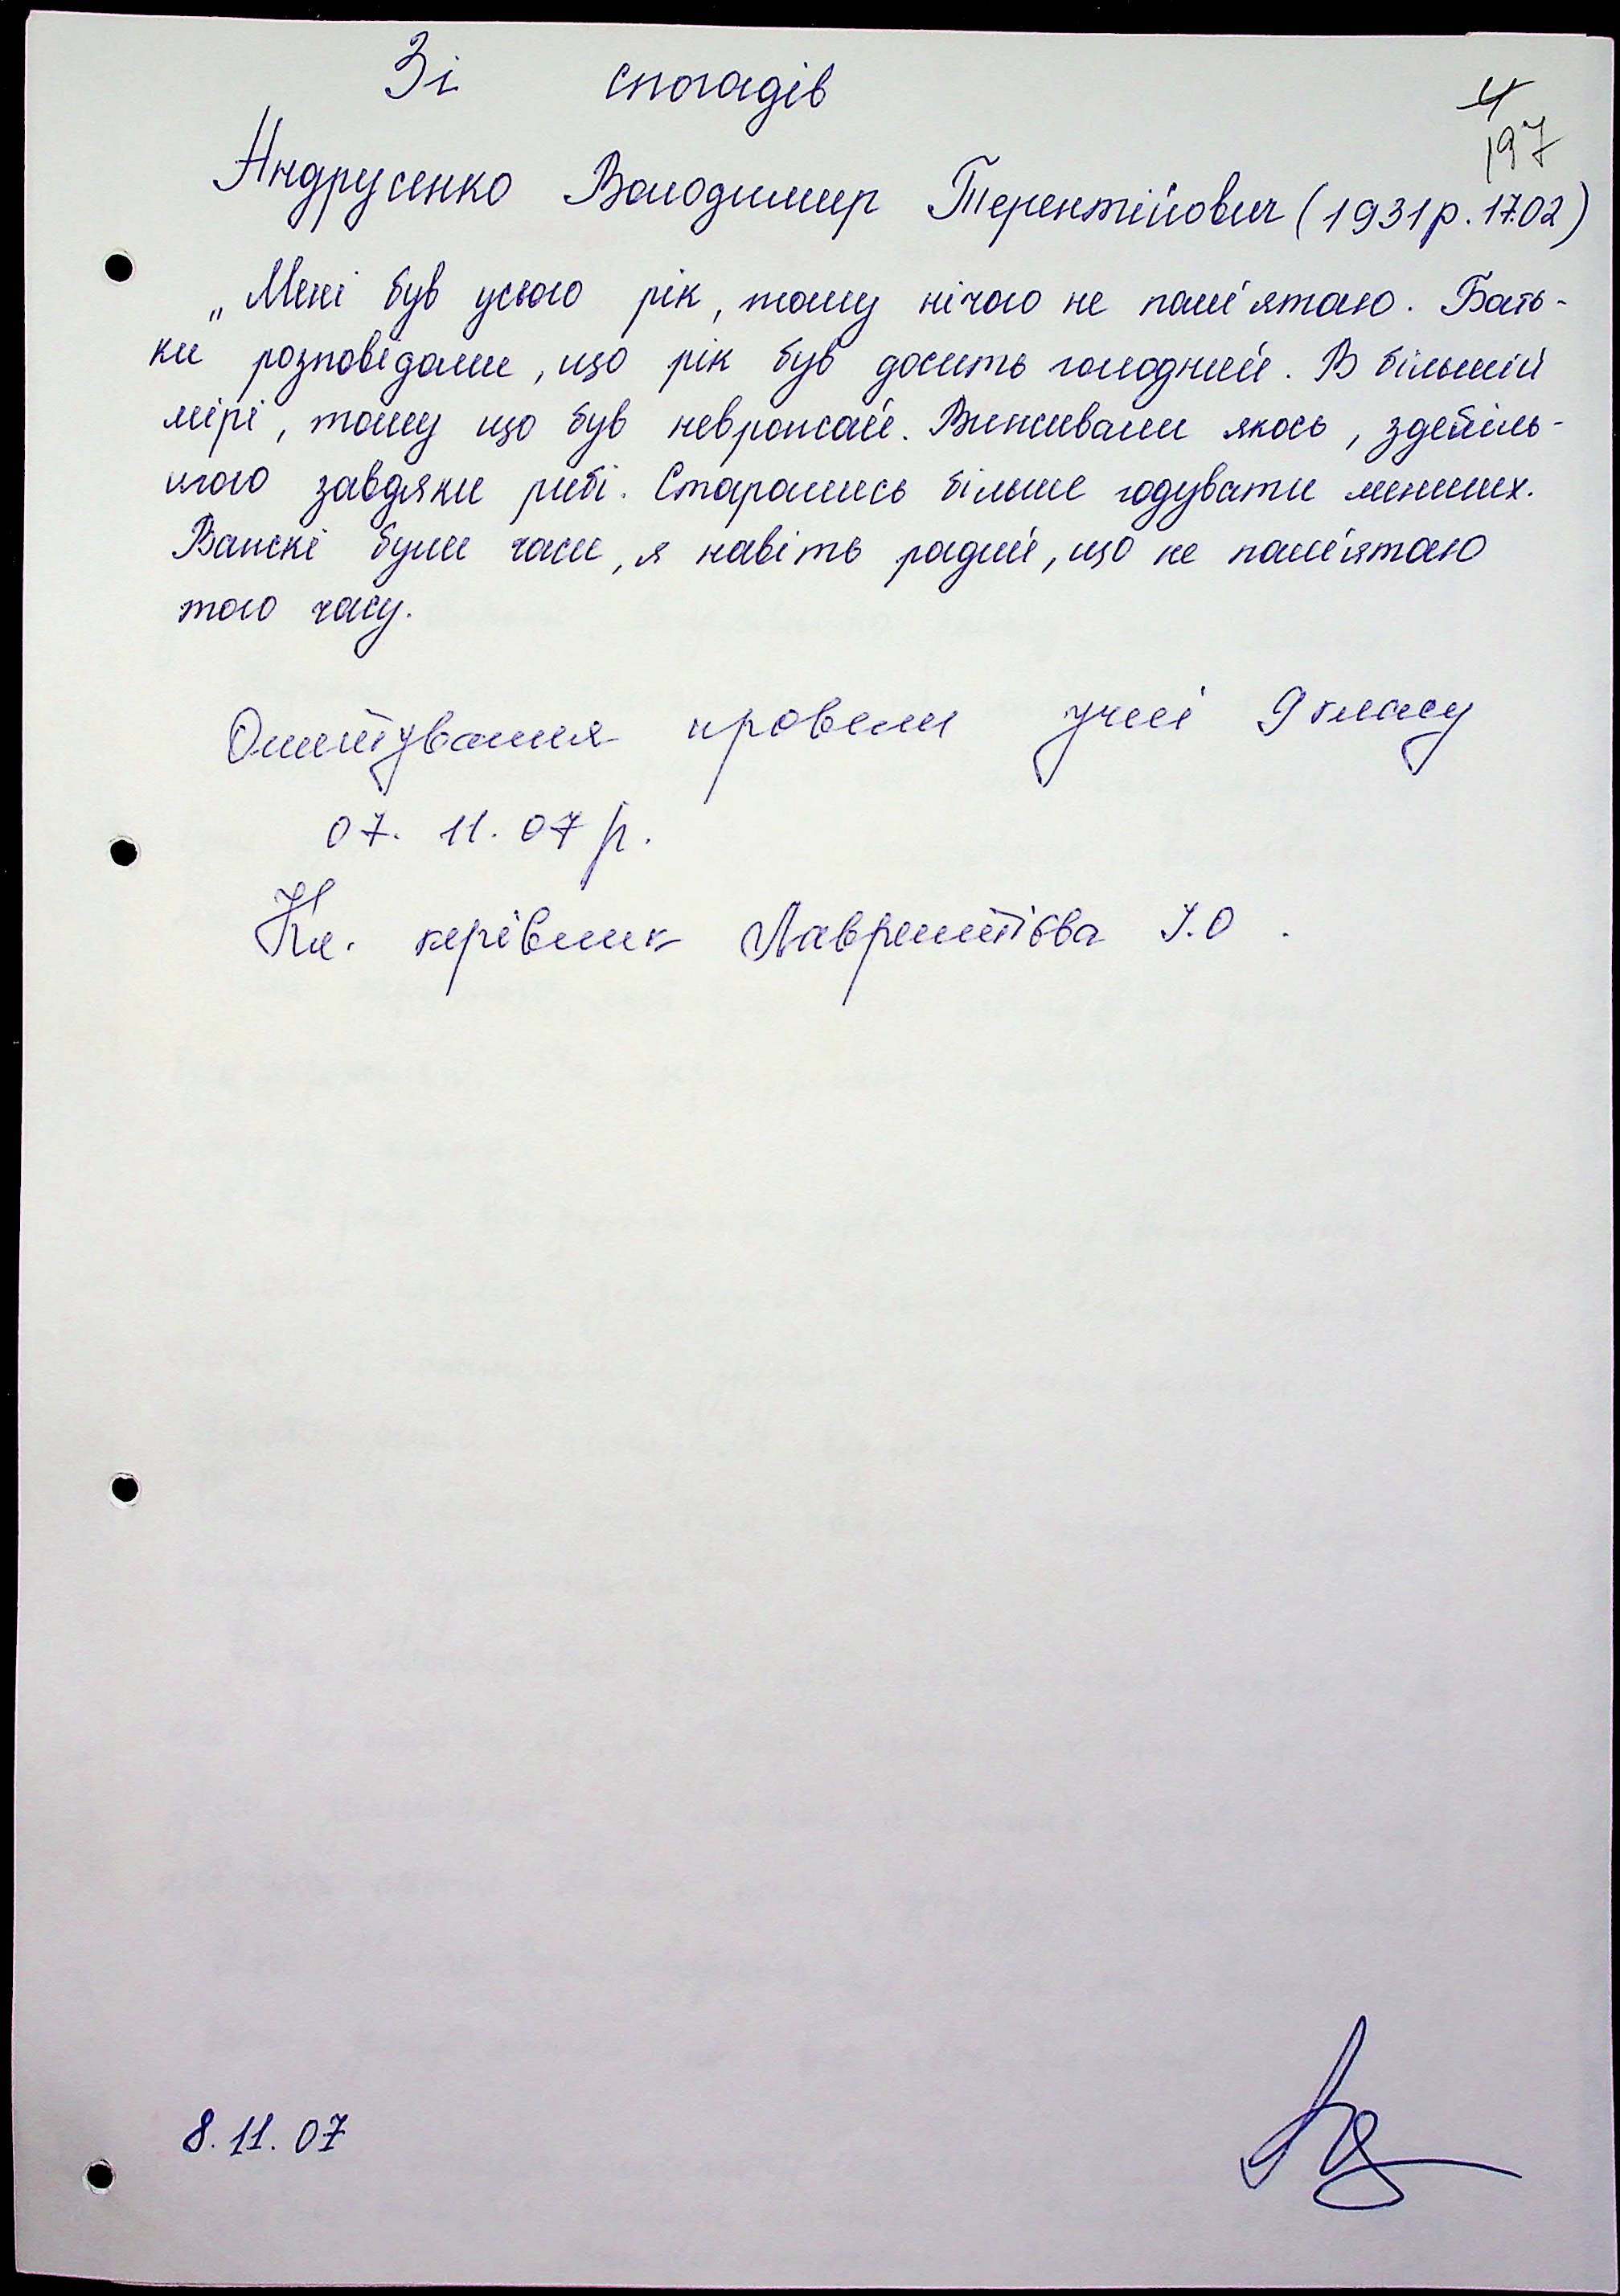 Зі спогадів
197
Андрусенко Володимир Терентійович (1931р. 17.02)
„Мені був усього рік, тому нічого не пам'ятаю. Бать-
ки розповідали, що рік був досить голодний. В більшій
мірі, тому що був неврожай. Виживали якось, здебіль-
шого завдяки рибі. Старались більше годувати менших.
Важкі були часи, я навіть радий, що не пам'ятаю
того часу.
Опитування провели учні 9 класу
07. 11. 07 р.
Кл. керівник Лаврентієва І.О.
8. 11. 07